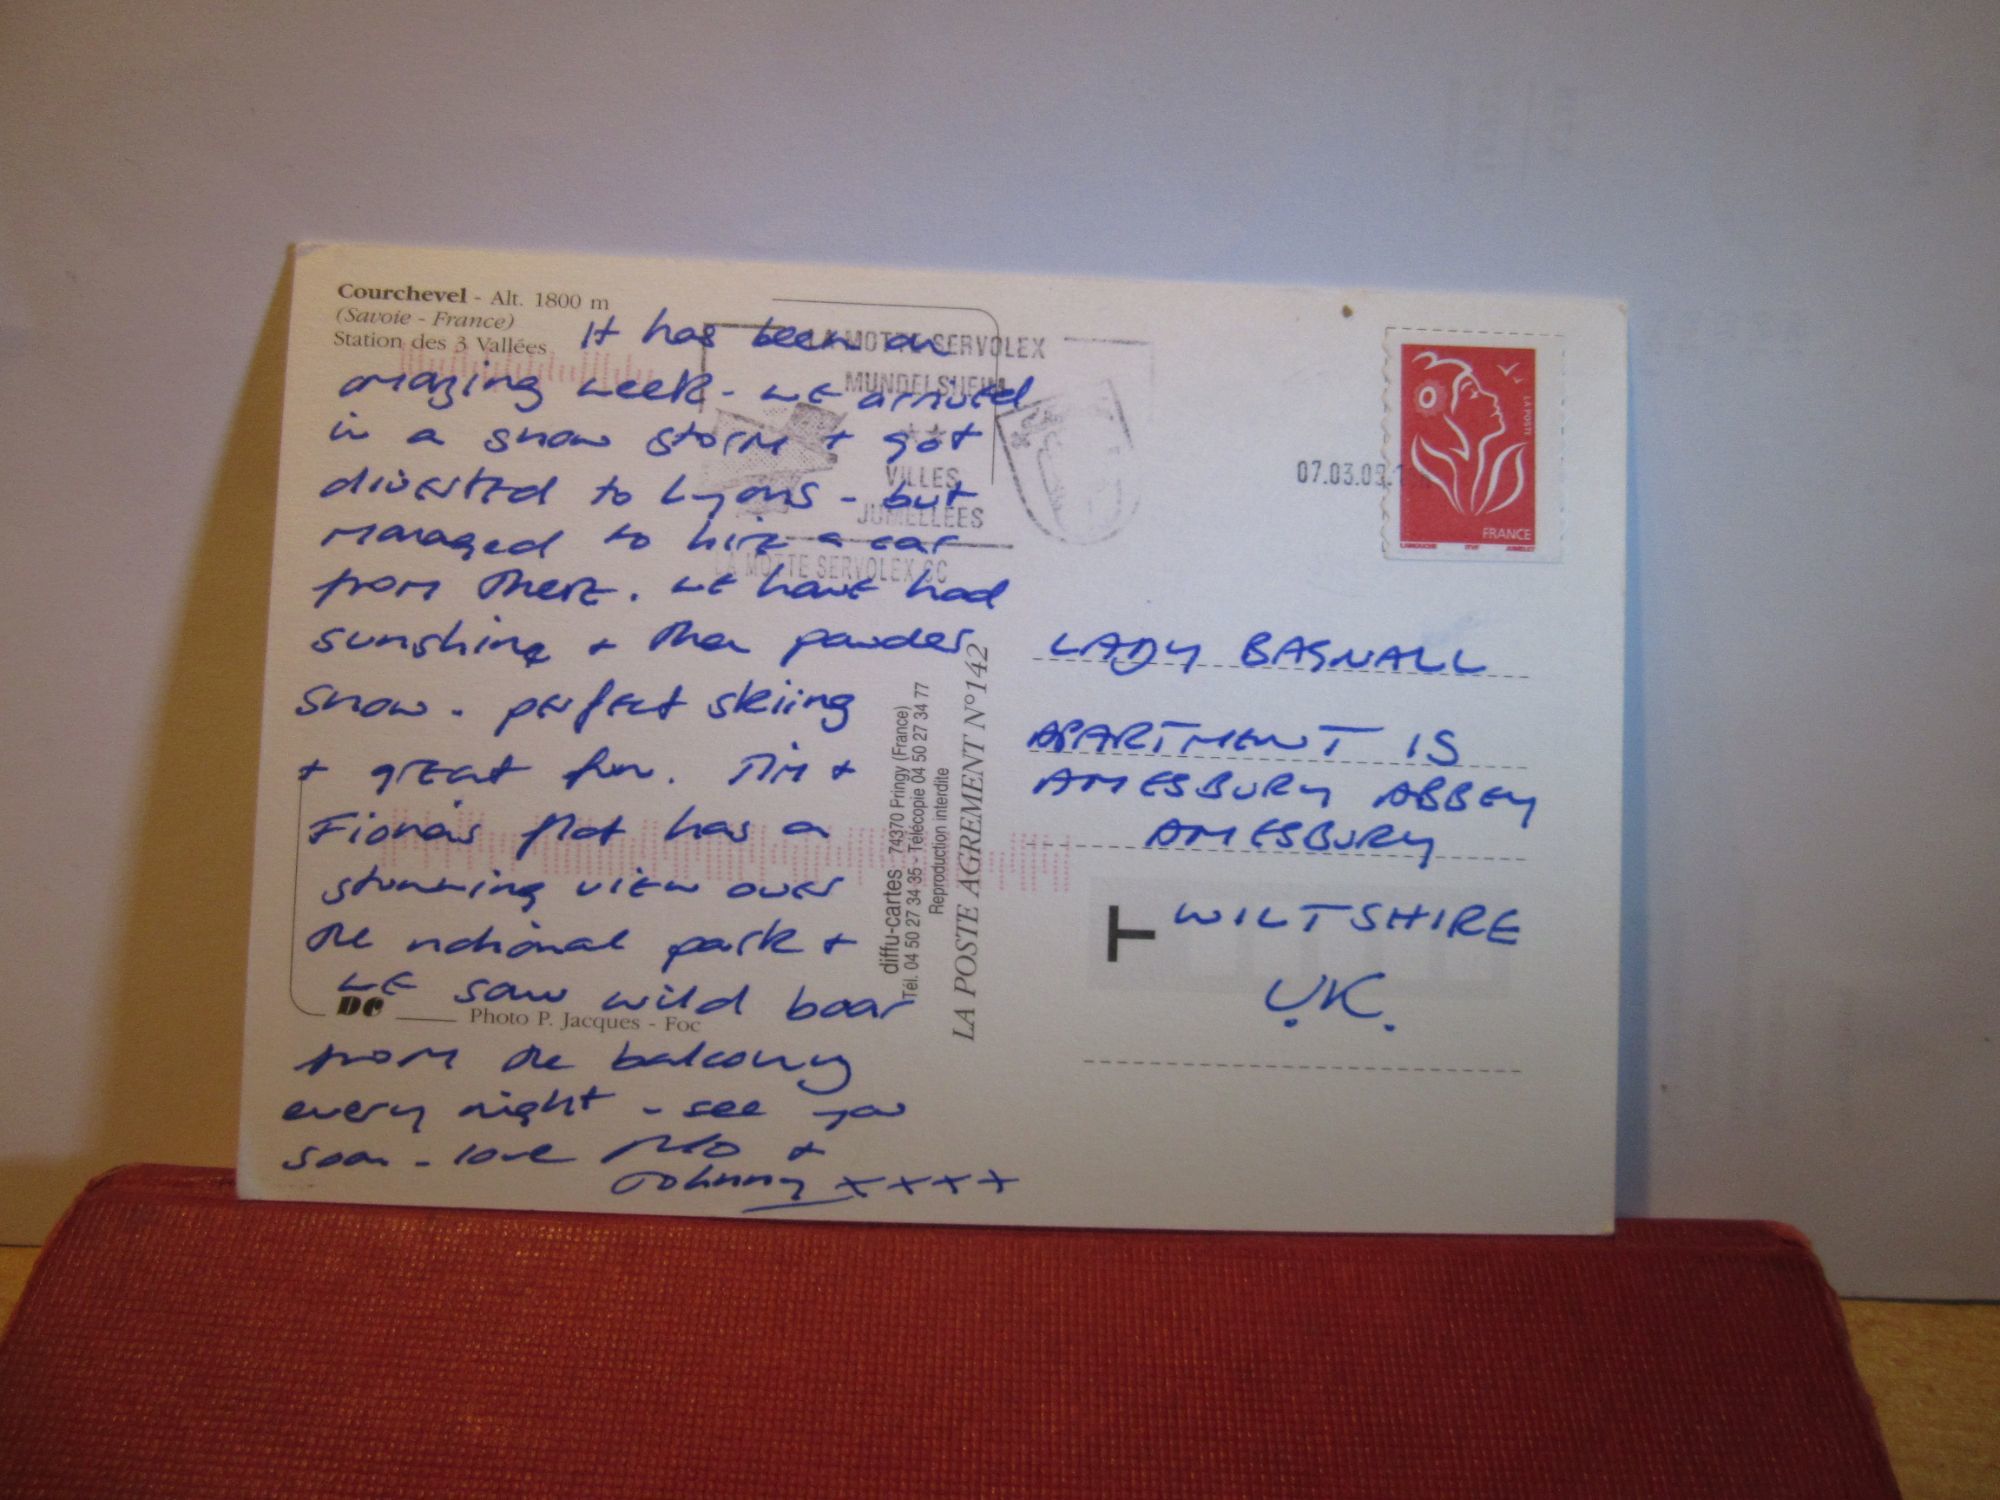 Courchevel - Alt. 1800 m
(Savoie - France)
Station des 3 Vallées
It has been an
amazing week - we arrived
in a snow storm + got
diverted to Lyons - but
managed to hire a car
from there. we have had
sunshine + then powder
snow - perfect skiing
+ great fun. Tim +
Fiona's flat has a
stunning view over
the national park +
we saw wild boar
from the balcony
every night - see you
soon - love +
Johnny xxxx
DC
Photo P. Jacques - Foc
LA MOTTE SERVOLEX
MUNDELSHEIM
VILLES
JUMELLÉES
LA MOTTE SERVOLEX CC
diffu-cartes 74370 Pringy (France)
Tél. 04 50 27 34 35 - Télécopie 04 50 27 34 77
Reproduction interdite
LA POSTE AGREMENT N°142
07.03.0
LA POSTE
FRANCE
LAMOUCHE ITVF JUMELET
LADY BAGNALL
APARTMENT 15
AMESBURY ABBEY
AMESBURY
T WILTSHIRE
U.K.